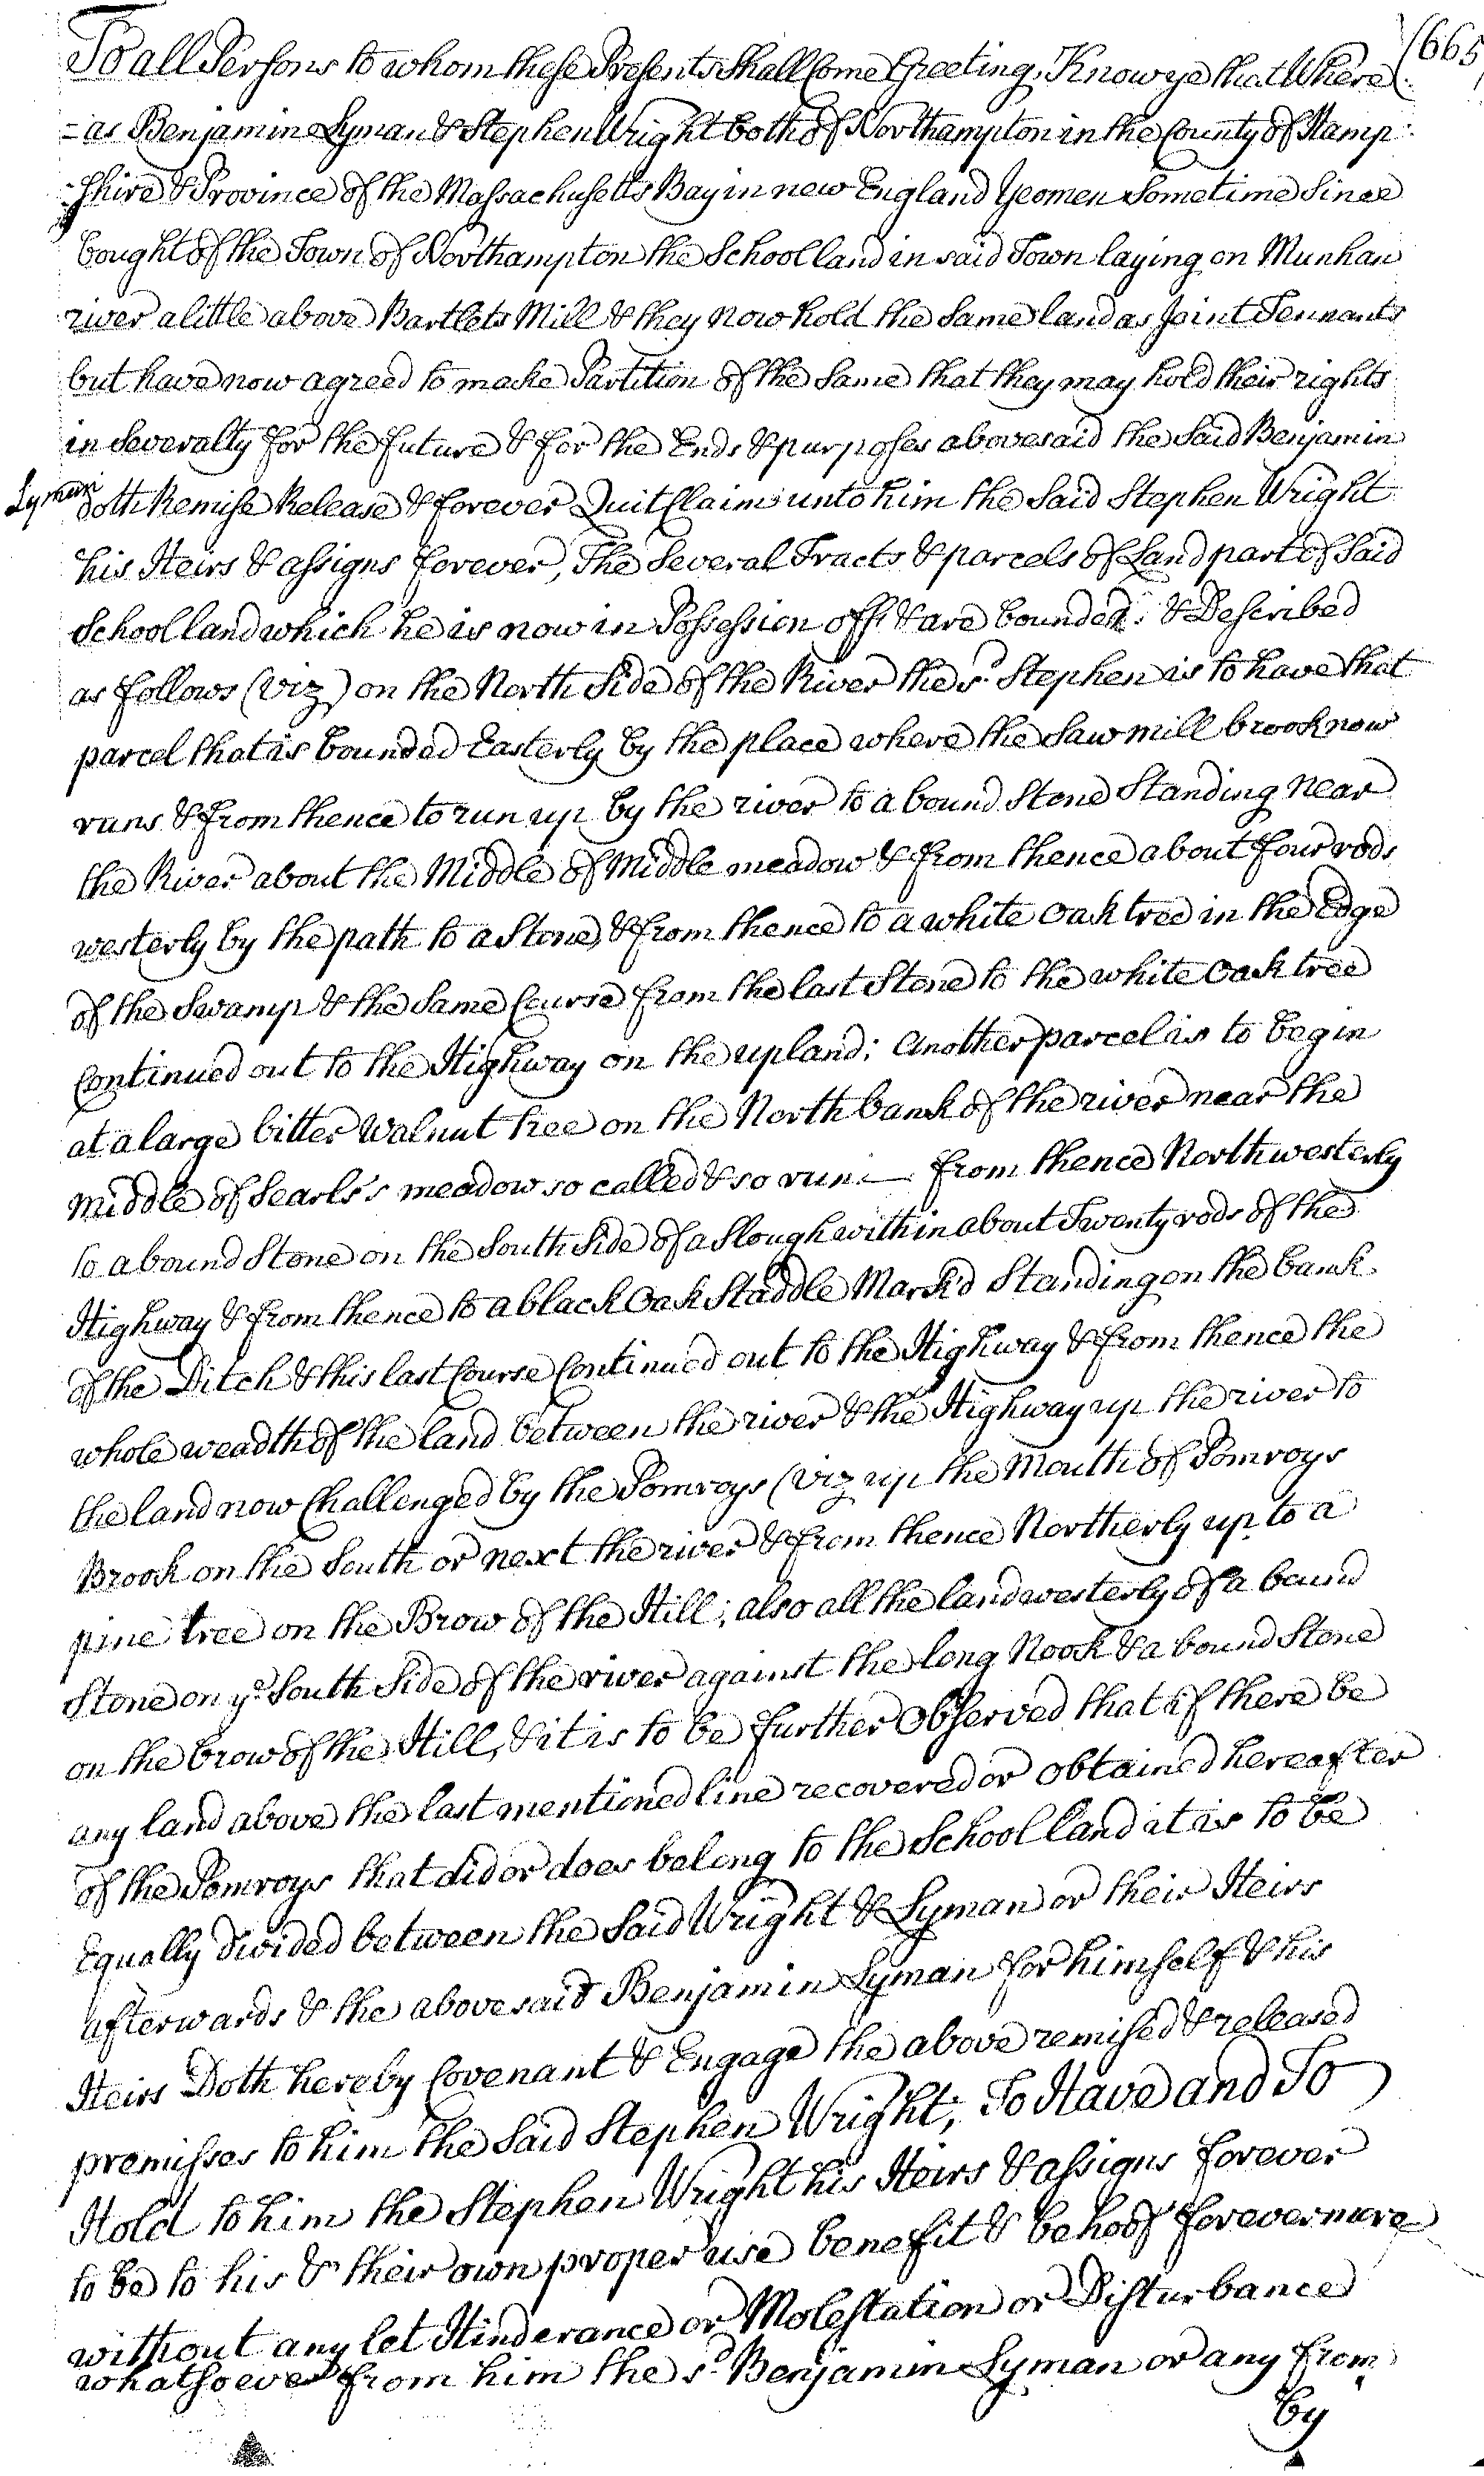 (665
To all Persons to whom these Presents Shall Come Greeting, Know ye that Where
=as Benjamin Lyman & Stephen Wright both of Northampton in the County of Hamp
=shire & Province of the Massachusetts Bay in new England Yeomen Sometime Since
bought of the Town of Northampton the School land in said Town laying on Munhan
river a little above Bartlets Mill & they now hold the Same land as Joint Tennants
but have now agreed to make Partition of the Same that they may hold their rights
in Severalty for the future & for the Ends & purposes abovesaid the Said Benjamin
Lyman doth Remise Release & forever Quit Claim unto him the Said Stephen Wright
his Heirs & assigns forever, The Several Tracts & parcels of Land part of Said
School land which he is now in Possession off & are bounded & Described
as follows (viz) on the North Side of the River the sd. Stephen is to have that
parcel that is bounded Easterly by the place where the Saw mill brook now
runs & from thence to run up by the river to a bound Stone Standing near
the River about the Middle of Middle meadow & from thence about four rods
westerly by the path to a Stone, & from thence to a white Oak tree in the Edge
of the Swamp & the Same Course from the last Stone to the white Oak tree
Continued out to the Highway on the upland; another parcel is to begin
at a large bitter Walnut tree on the North bank of the river near the
Middle of Searls's meadow so called & so run — from thence Northwesterly
to a bound Stone on the South Side of a Slough within about Twenty rods of the
Highway & from thence to a black Oak Staddle Mark'd Standing on the bank
of the Ditch & this last Course Continued out to the Highway & from thence the
whole weadth of the land between the river & the Highway up the river to
the land now Challenged by the Pomroys (viz up the Mouth of Pomroys
Brook on the South or next the river & from thence Northerly up to a
pine tree on the Brow of the Hill; also all the land westerly of a bound
Stone on ye South Side of the river against the long Nook & a bound Stone
on the brow of the Hill, & it is to be further Observed that if there be
any land above the last mentioned line recovered or obtained hereafter
of the Pomroys that did or does belong to the School land it is to be
Equally divided between the Said Wright & Lyman or their Heirs
afterwards & the abovesaid Benjamin Lyman for himself & his
Heirs Doth hereby Covenant & Engage the above remised & released
premisses to him the Said Stephen Wright; To Have and To
Hold to him the Stephen Wright his Heirs & assigns forever
to be to his & their own proper use benefit & behoof forevermore
without any let Hinderance or Molestation or Disturbance
whatsoever from him the sd. Benjamin Lyman or any from
by